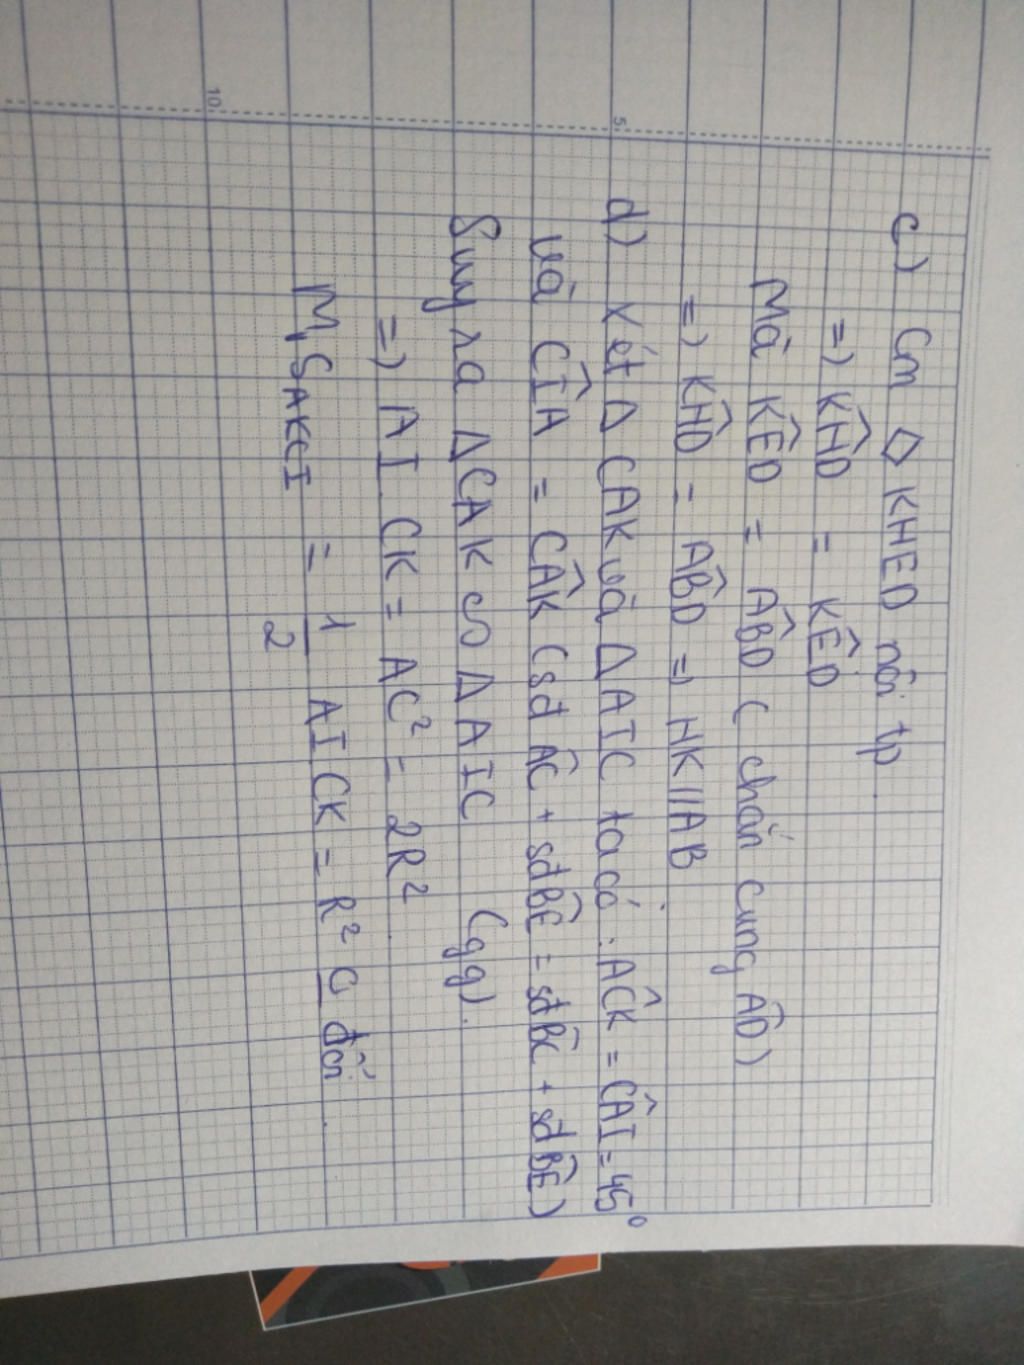 c) Cm ◇ KHED nội tp.
=) K̂HD = K̂ED
Mà K̂ED = ÂBD ( chắn cung AD̂)
=) K̂HD = ÂBD =) HK//AB
d) Xét Δ CAK và Δ AIC ta có: ÂCK = ĈAI = 45°
và ĈIA = ĈAK (sđ AĈ + sđ BÊ = sđ BĈ + sđ BÊ)
Suy ra Δ CAK ∽ Δ AIC (gg).
=) AI. CK = AC² = 2R².
Mà S AKCI = 1/2 AI CK = R² o đổi.
5
10